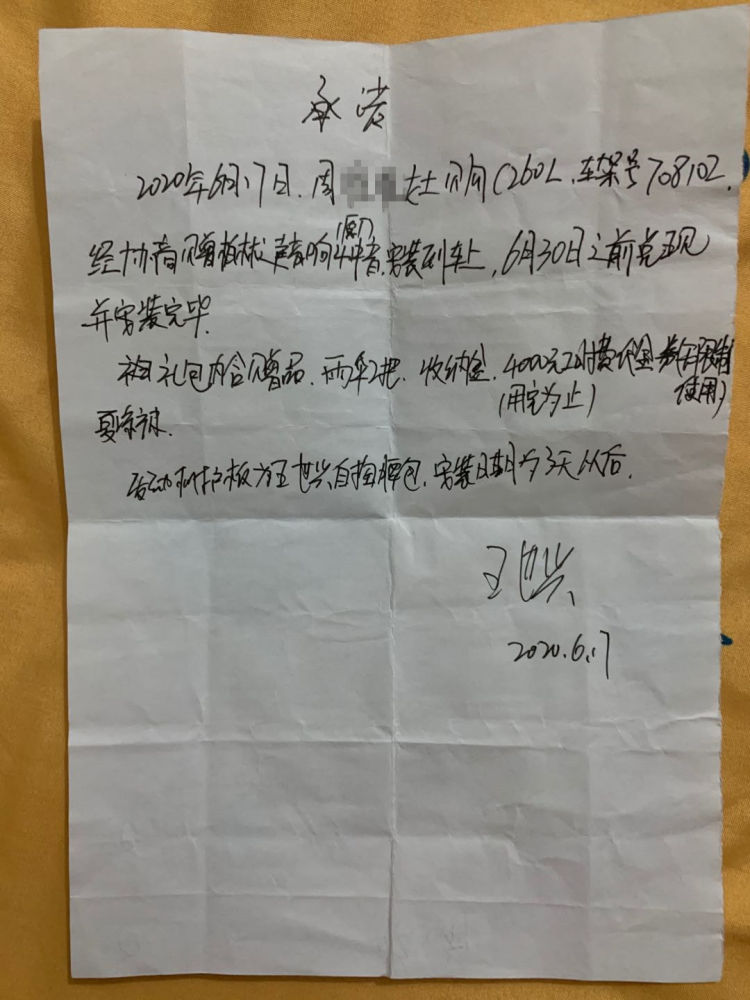 承诺
2020年6月17日.周 女士购C260L.车架号708102.
经协商赠柏林之声音响4S店(原厂)安装到车上,6月30日之前兑现
并安装完毕.
礼包内含赠品.雨伞2把.收纳盒.4000元工时费代金券(无限制使用)
(用完为止)
夏凉被.
发动机护板为王世兴自掏腰包.安装日期为3天以后.
王世兴
2020.6.17